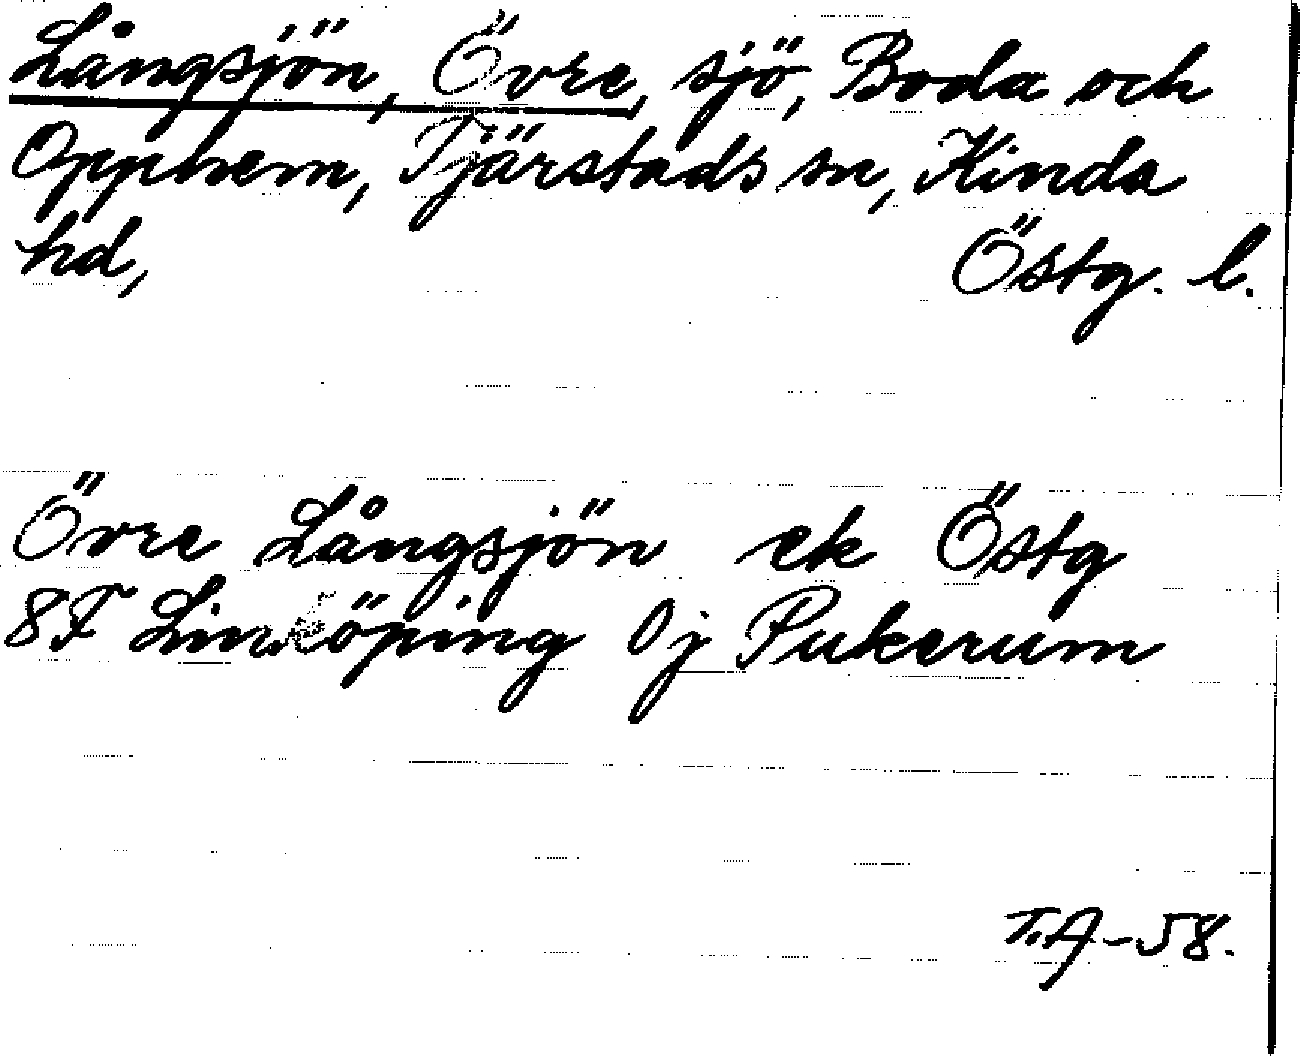 Långsjön, Övre, sjö, Boda och
Opphem, Tjärstads sn, Kinda
hd, Östg. l.
Övre Långsjön ek Östg
8F Linköping 0j Pukerum
T.A-58.